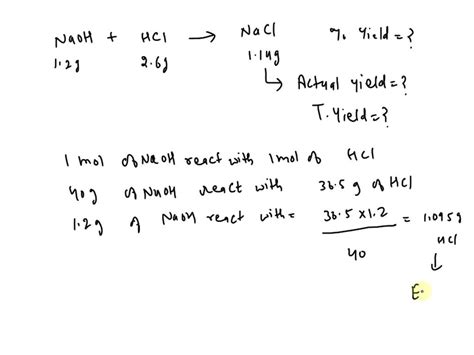 NaOH + HCl → NaCl % Yield = ?
1.2g 2.6g 1.14g
↳ Actual yield = ?
T. Yield = ?
1 mol of NaOH react with 1 mol of HCl
40g of NaOH react with 36.5 g of HCl
1.2g of NaOH react with = 36.5 × 1.2 / 40 = 1.095g
HCl
↓
E